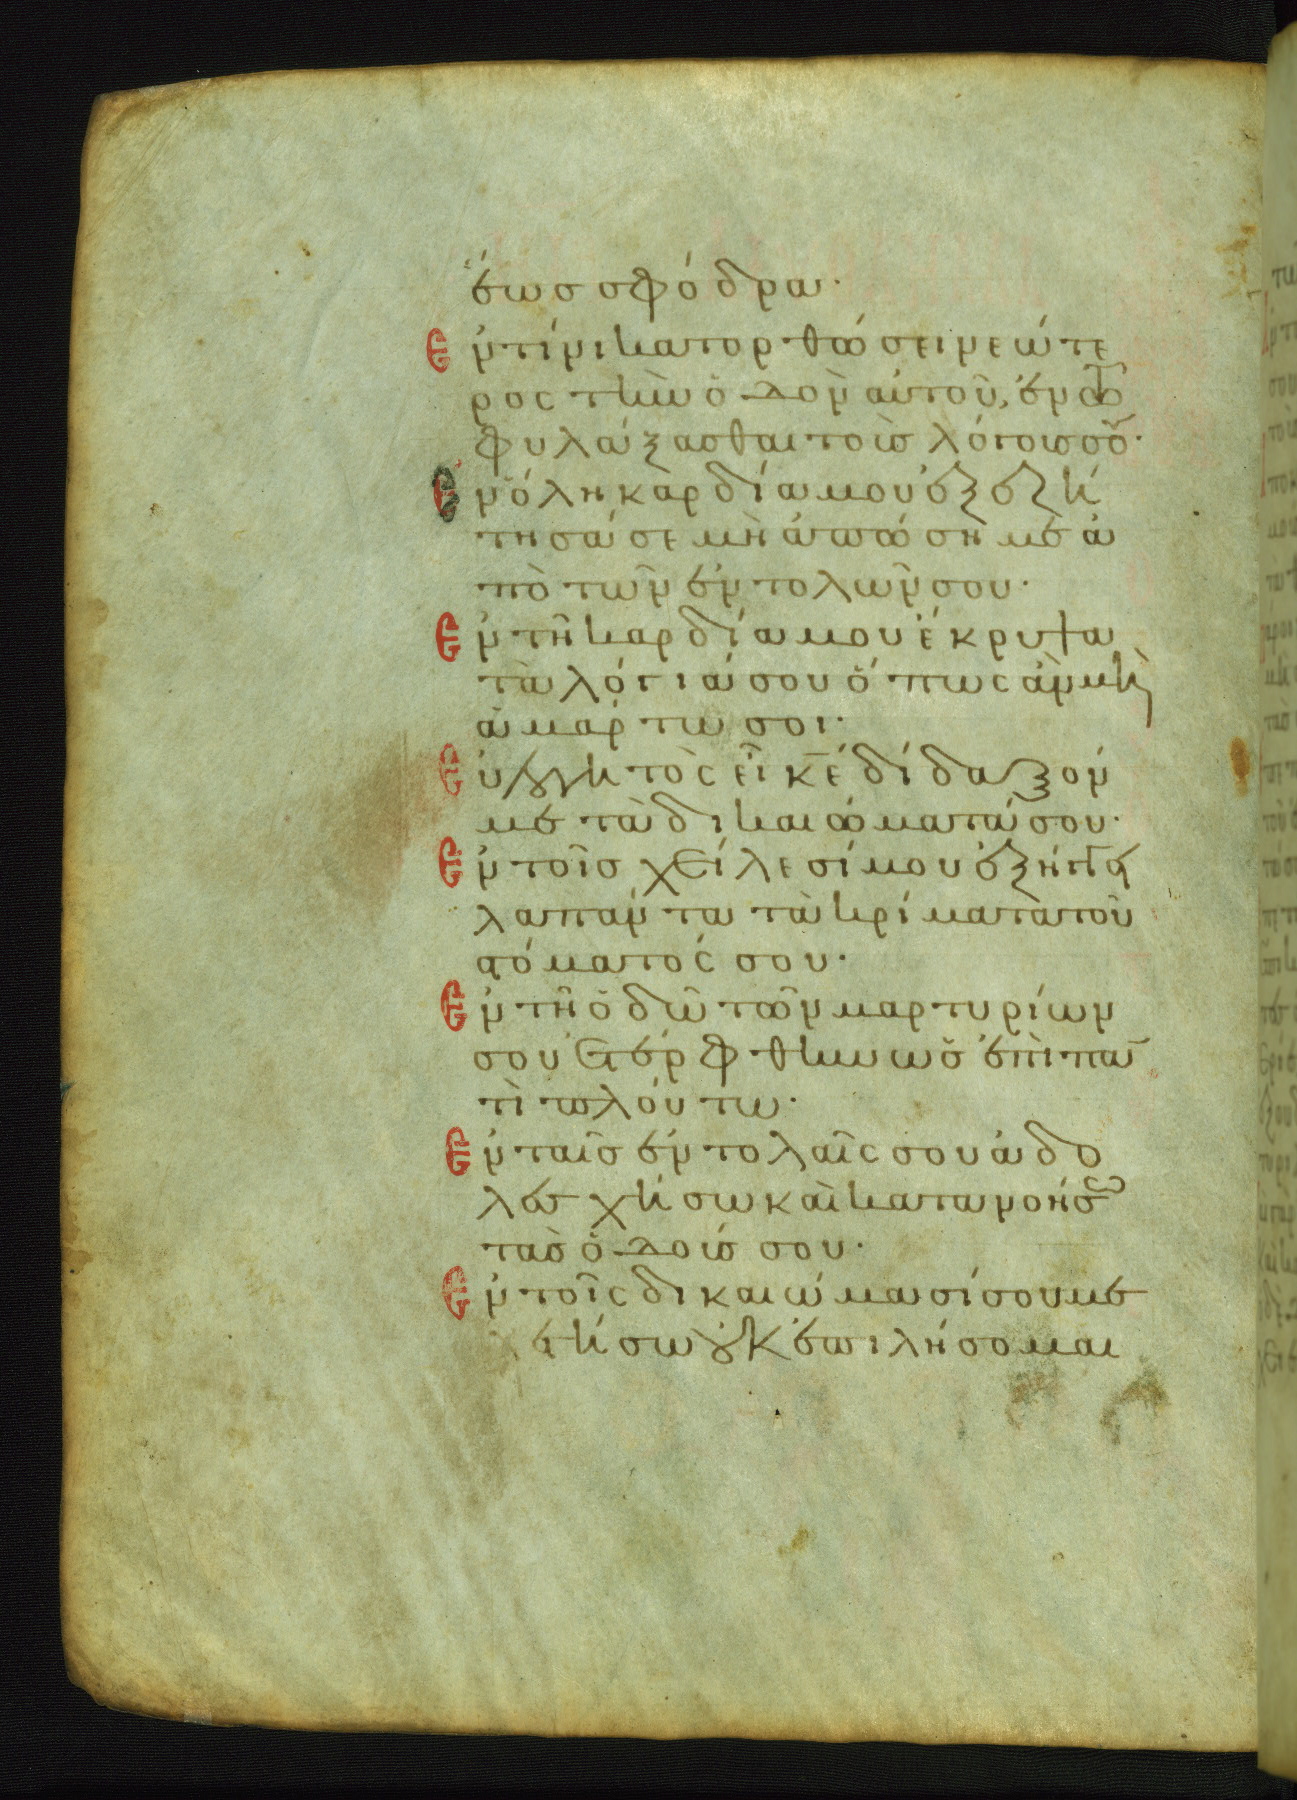 ἕως σφόδρα·
Ἐν τίνι κατορθώσει νεώτε
ρος τὴν ὁδὸν αὐτοῦ, ἐν τῶ
φυλάξασθαι τοὺς λόγους σου·
Ἐν ὅλη καρδία μου ἐξεζή
τησά σε μὴ ἀπώση με ἀ
πὸ τῶν ἐντολῶν σου·
Ἐν τῆ καρδία μου ἔκρυψα
τὰ λόγιά σου ὅπως ἂν μὴ
ἁμάρτω σοι·
Εὐλογητὸς εἶ κ̅ε̅ δίδαξόν
με τὰ δικαιώματά σου·
Ἐν τοῖς χείλεσί μου ἐξήγγει
λα πάντα τὰ κρίματα τοῦ
στόματός σου·
Ἐν τῆ ὁδῶ τῶν μαρτυρίων
σου ἐτέρφθην ὡς ἐπὶ παν
τὶ πλούτω·
Ἐν ταῖς ἐντολαῖς σου ἀδο
λεσχήσω καὶ κατανοήσω
τὰς ὁδούς σου·
Ἐν τοῖς δικαιώμασί σου με
λετήσω οὐκ ἐπιλήσομαι